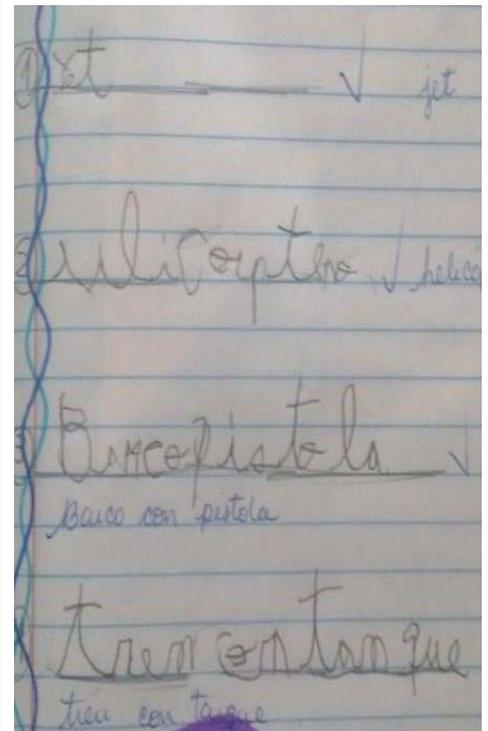 1 Yet ✓ jet
2 ulicoptero ✓ helicó
3 Barcopistola ✓
Barco con pistola
tren con tan que
tren con tanque